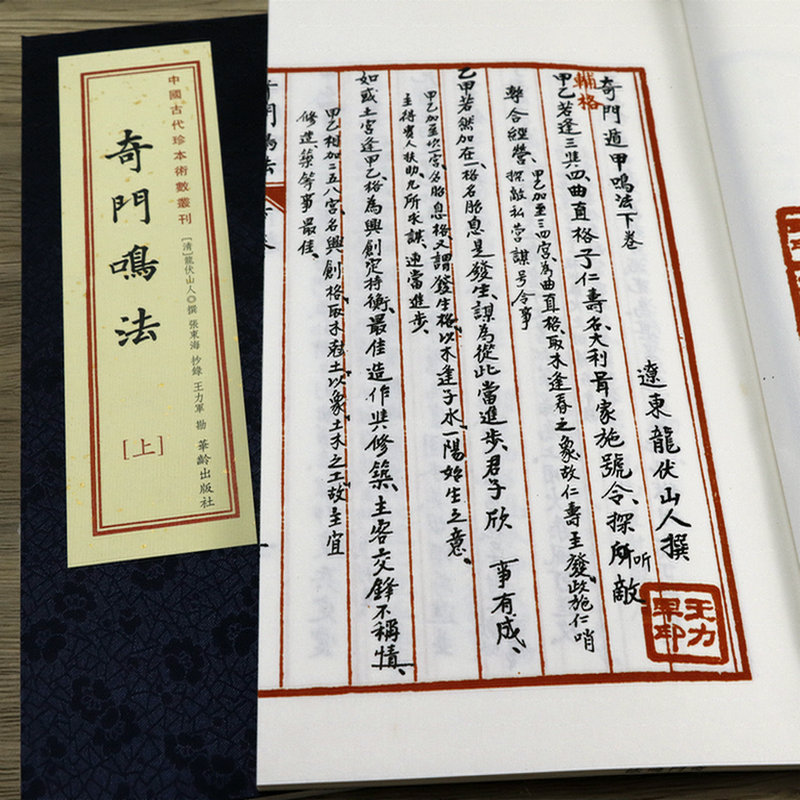 中國古代珍本術數叢刊
奇門鳴法
[清]龍伏山人◎撰 張東海 抄錄 王力軍 勘 華齡出版社
[上]
奇門遁甲鳴法下卷
遼東龍伏山人撰
輔格
甲乙若逢三與四、曲直格子仁壽名、大利晋家施號令、探所听敵
甲乙加至三四宮、為曲直格、取木逢春之象、故仁壽主發政施仁哨
聯合經營、探敵私营謀号令事
乙甲若然加在一、格名胎息是發生、謀為從此當進步、君子欣 事有成、
甲乙加至坎一宮、名胎息格、又謂發生格、以木逢子水、一陽始生之意、
主得貴人扶助、凡所求謀、速當進步、
如或土宮逢甲乙、格為興創定持衡、最佳造作與修築、主客交鋒不稱情、
甲乙相加二五八宮、名興創格、取木尅土以象、土木之工、故主宜
修造、築等事最佳、
奇門鳴法
王力軍印